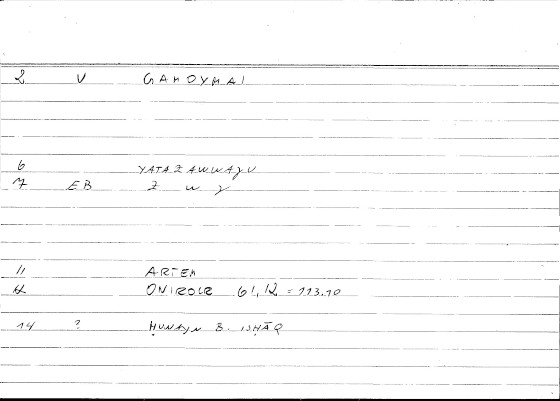 2 V GAMOYMAI
6 YATAZAWWAǦU
7 EB Z W Ǧ
11 ARTEM
12 ONIROCR 61,12 = 113.10
14 ? ḤUNAYN B. ISḤĀQ